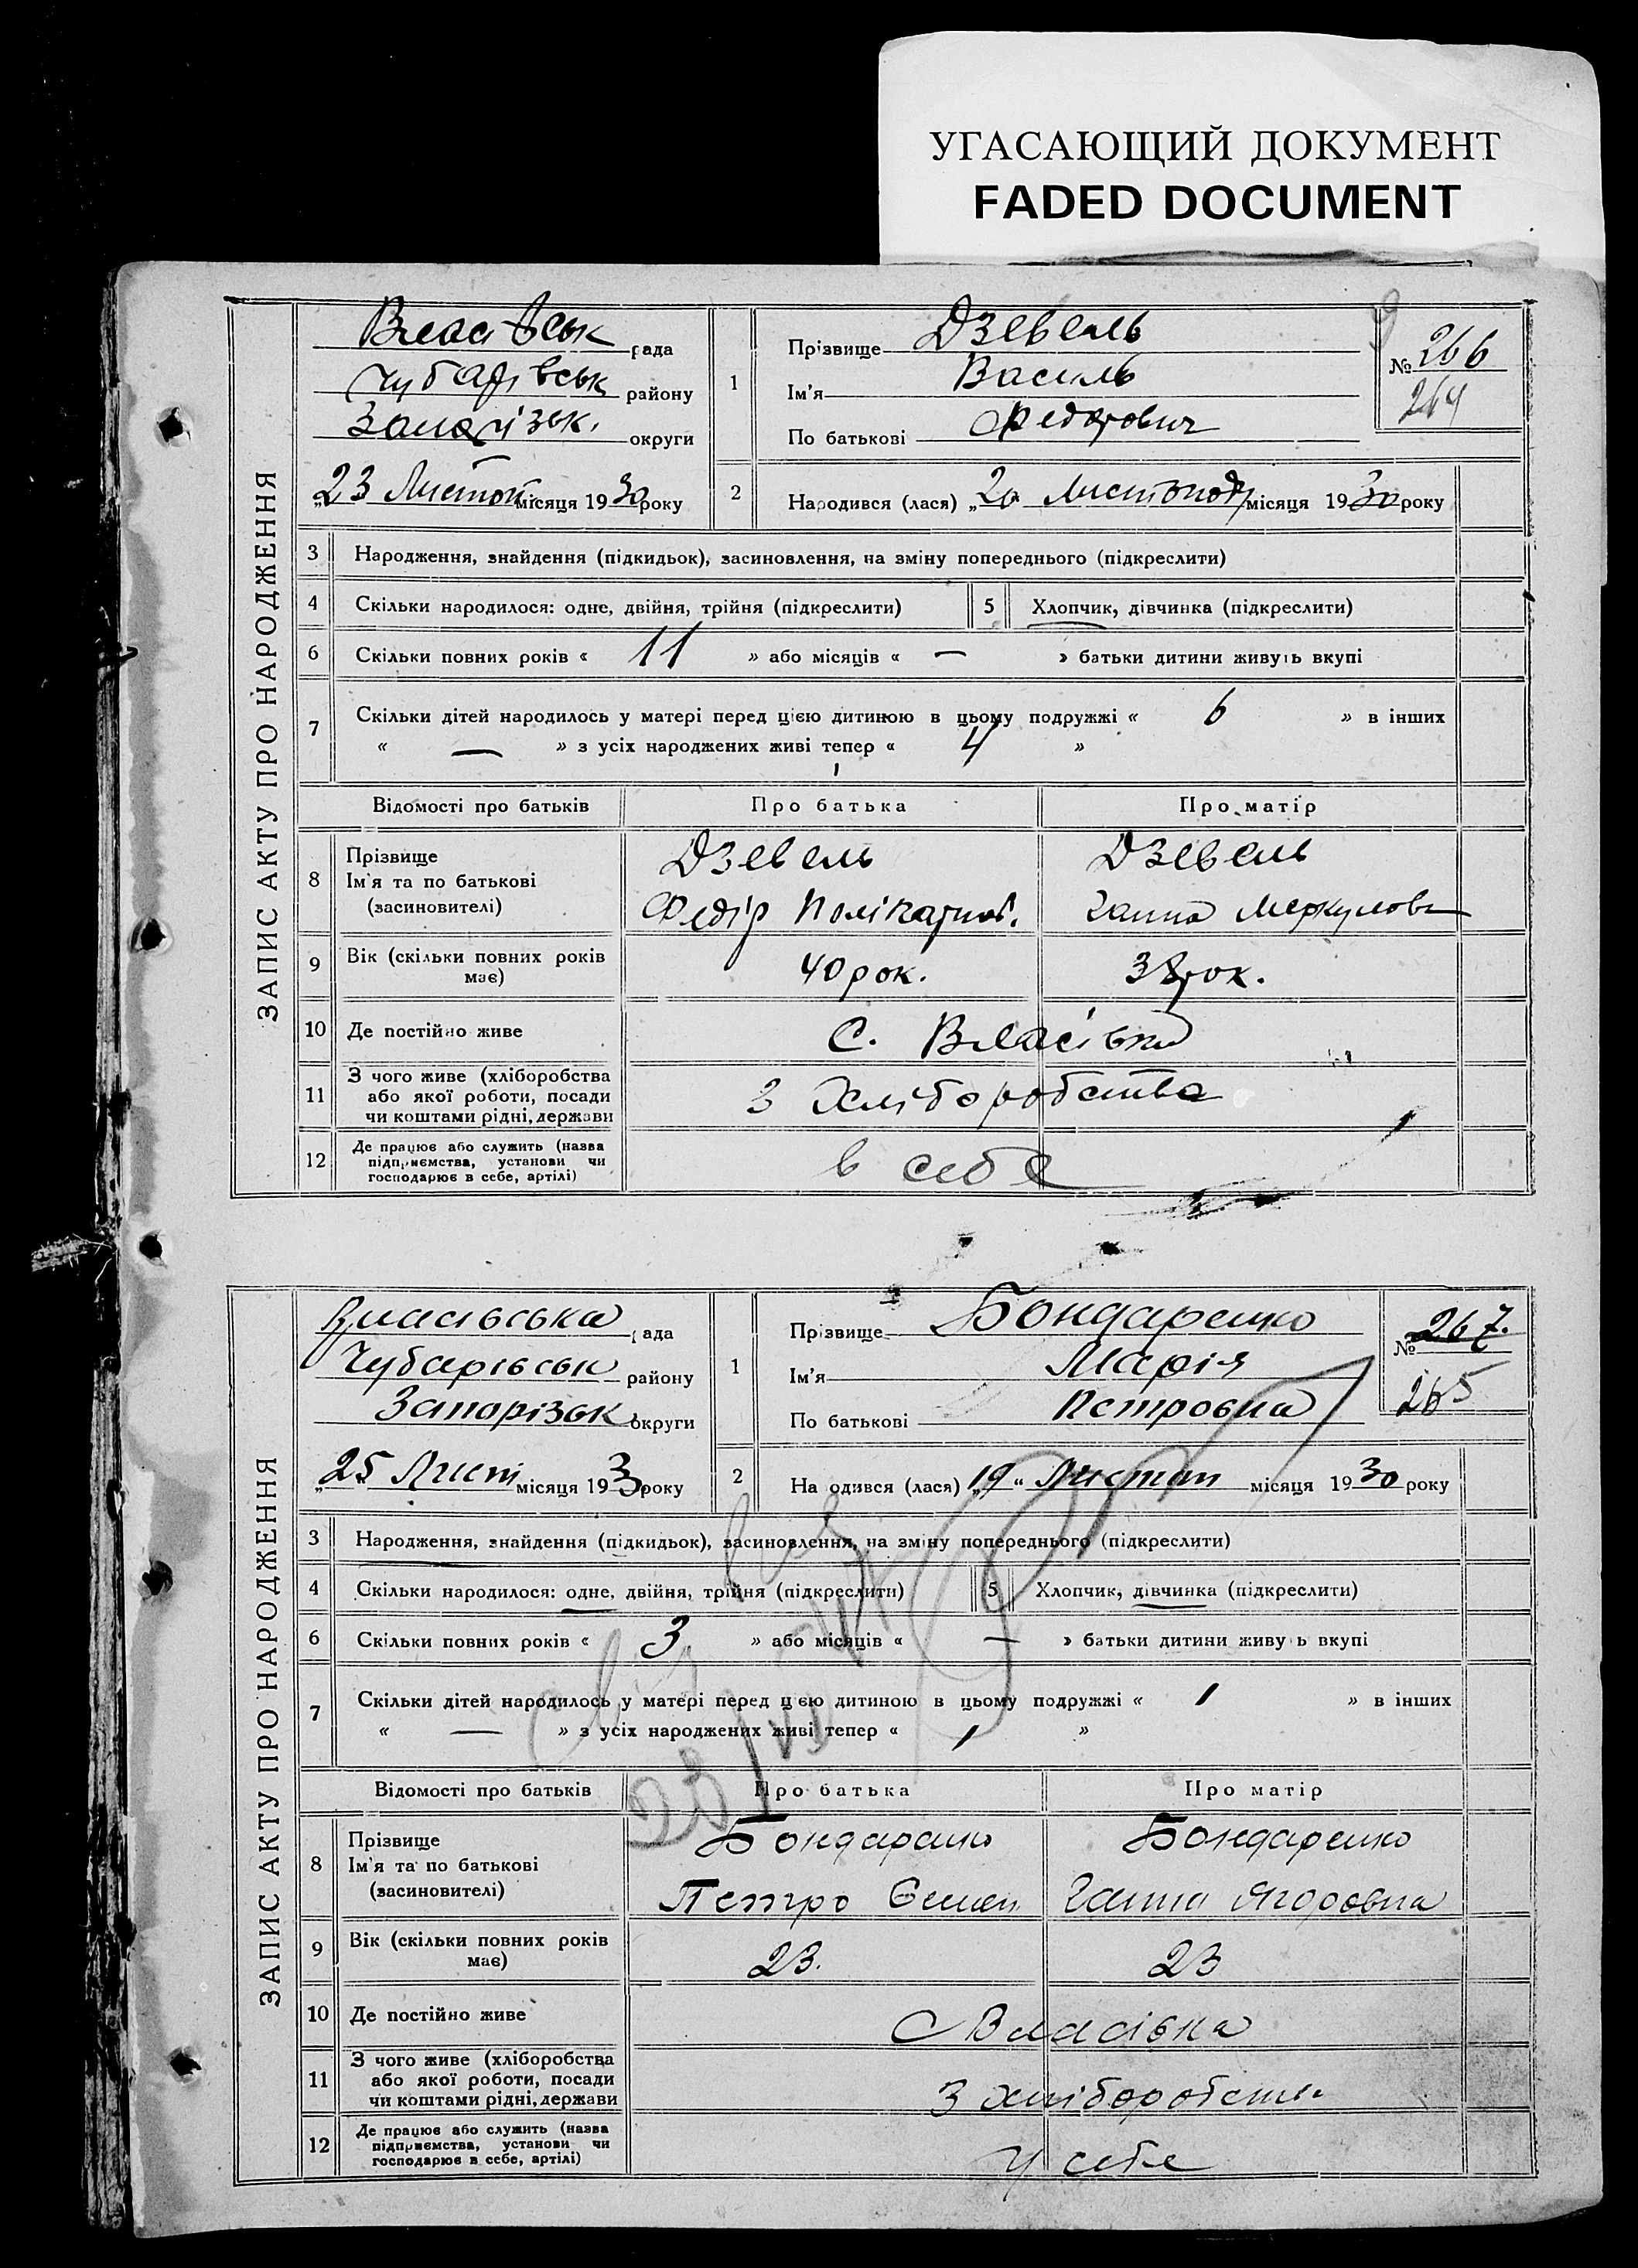 УГАСАЮЩИЙ ДОКУМЕНТ
FADED DOCUMENT
ЗАПИС АКТУ ПРО НАРОДЖЕННЯ
Власівськ рада
Чубарівськ району
Запорізьк. округи
„23 Листоп місяця 1930 року
1
Прізвище Дзевель
Ім'я Василь
По батькові Федорович
№ 266
264
2
Народився (лася) „20 Листопад місяця 1930 року
3 Народження, знайдення (підкидьок), засиновлення, на зміну попереднього (підкреслити)
4 Скільки народилося: одне, двійня, трійня (підкреслити) 5 Хлопчик, дівчинка (підкреслити)
6 Скільки повних років « 11 » або місяців « — » батьки дитини живуть вкупі
7 Скільки дітей народилось у матері перед цією дитиною в цьому подружжі « 6 » в інших
« — » з усіх народжених живі тепер « 4 »
Відомості про батьків Про батька Про матір
8 Прізвище Ім'я та по батькові (засновителі)
Дзевель Дзевель
Федір Полікарпов. Ганна Меркулов
9 Вік (скільки повних років має) 40 рок. 38 рок.
10 Де постійно живе С. Власівка
11 З чого живе (хліборобства або якої роботи, посади чи коштами рідні, держави З Хліборобства
12 Де працює або служить (назва підприємства, установи чи господарює в себе, артілі) в себе
ЗАПИС АКТУ ПРО НАРОДЖЕННЯ
Власівська рада
Чубарівськ району
Запорізьк округи
„25 Лист місяця 1930 року
1
Прізвище Бондаренко
Ім'я Марія
По батькові Петровна
№ 267.
265
2
Народився (лася) „19“ Листоп місяця 1930 року
3 Народження, знайдення (підкидьок), засиновлення, на зміну попереднього (підкреслити)
4 Скільки народилося: одне, двійня, трійня (підкреслити) 5 Хлопчик, дівчинка (підкреслити)
6 Скільки повних років « 3 » або місяців « — » батьки дитини живуь вкупі
7 Скільки дітей народилось у матері перед цією дитиною в цьому подружжі « 1 » в інших
« — » з усіх народжених живі тепер « 1 »
Відомості про батьків Про батька Про матір
8 Прізвище Ім'я та по батькові (засиновителі)
Бондаренко Бондаренко
Петро Семен Ганна Ягоровна
9 Вік (скільки повних років має) 23. 23
10 Де постійно живе С Власівка
11 З чого живе (хліборобства або якої роботи, посади чи коштами рідні, держави З хліборобств
12 Де працює або служить (назва підприємства, установи чи господарює в себе, артілі) У себе